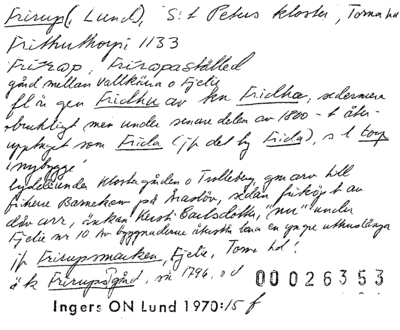 Frirup(, Lund), S:t Peters kloster, Torna hd
Frithuthorpi 1133
Frirop, Friropaställed
gård mellan Vallkärra o Fjelie
fl är gen Fridhu av kn Fridha, sedermera
obrukligt men under senare delen av 1800-t åter-
upptaget som Frida (jfr det by Frida), s l torp
'nybygge'
lydde under Klostergården o Trolleberg, gm arv till
friherre Barnekow på sedan friköpt av
dåv arr, änkan Kersti Carlsdotter, "nu" under
Fjelie nr 10 Av byggnaderna återstår bara en yngre uthuslänga
jfr Frirupsmarken, Fjelie, Torna hd!
ä k Frirupsgård, 1796, o d
00026353
Ingers ON Lund 1970:15 f